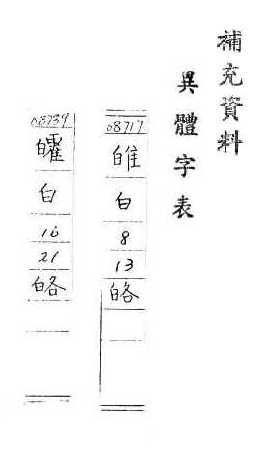 補充資料
異體字表
08717
白
8
13
08739
皬
白
16
21